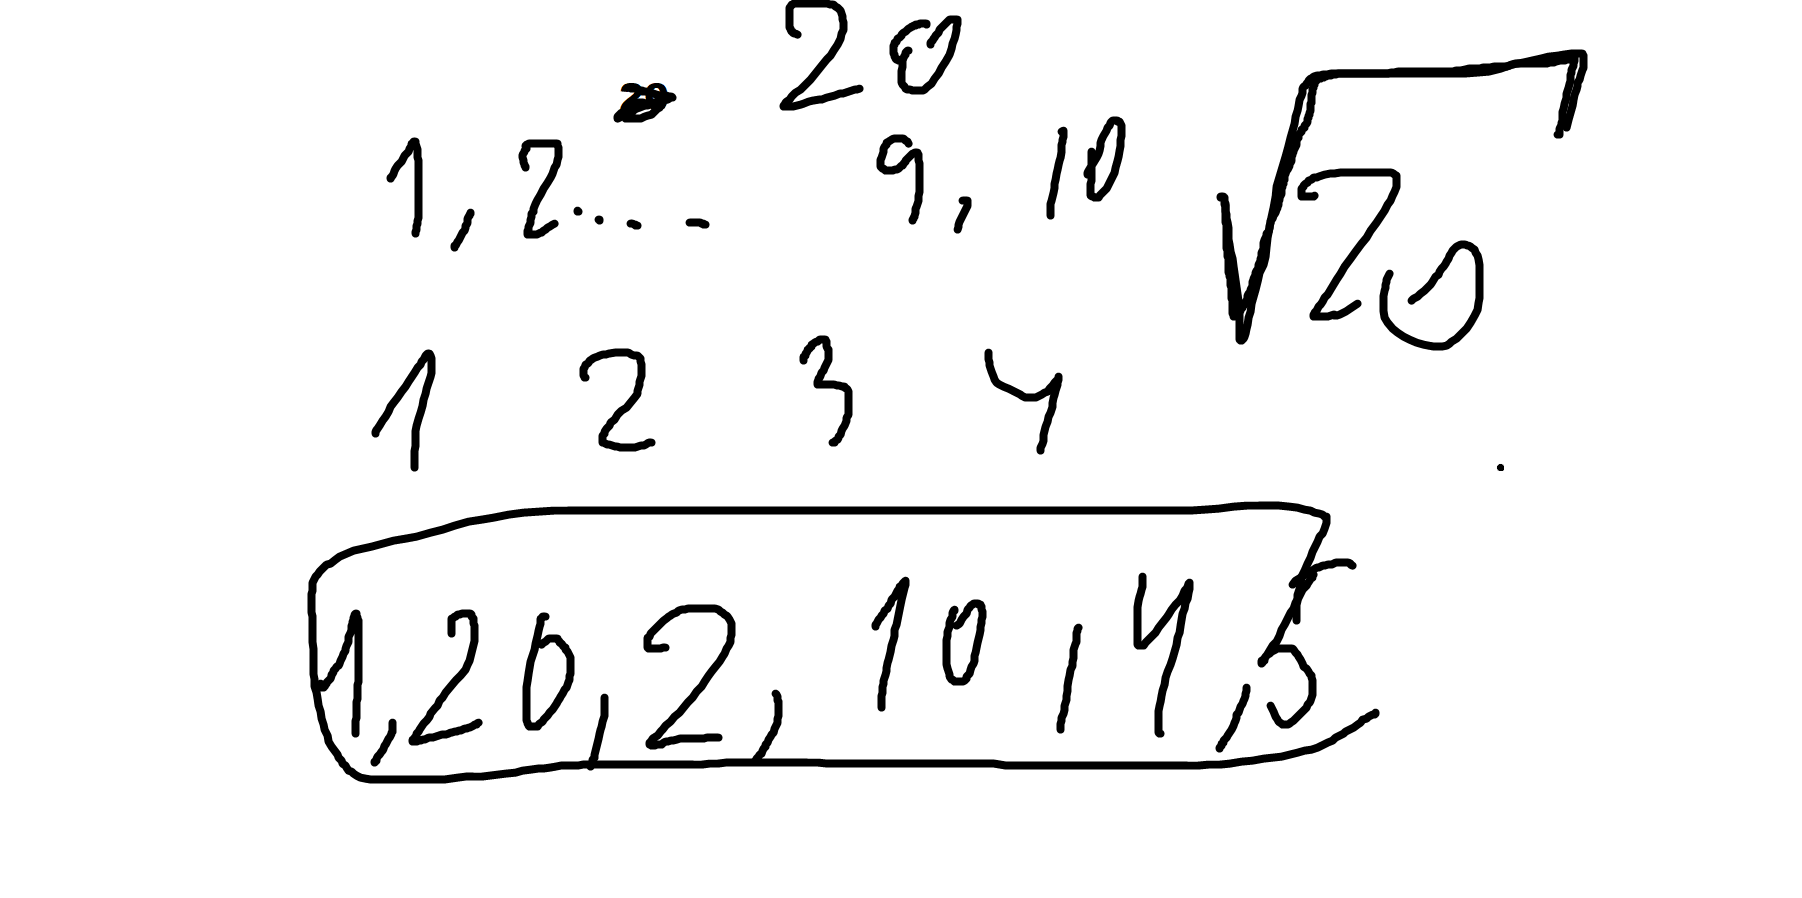 20
1, 2.... - 9, 10
√20
1 2 3 4
1, 20, 2, 10, 4, 5